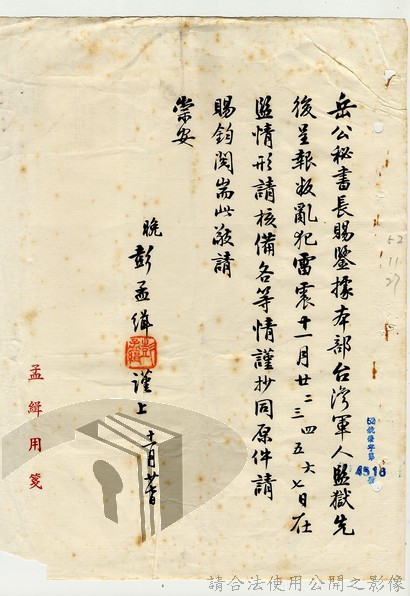 岳公秘書長賜鑒據本部台灣軍人監獄先
後呈報叛亂犯雷震十一月廿二三四五六七日在
監情形請核備各等情謹抄同原件請
賜鈞閱耑此敬請
崇安
晚彭孟緝謹上
孟緝用箋
52
11
27
請合法使用公開之影像